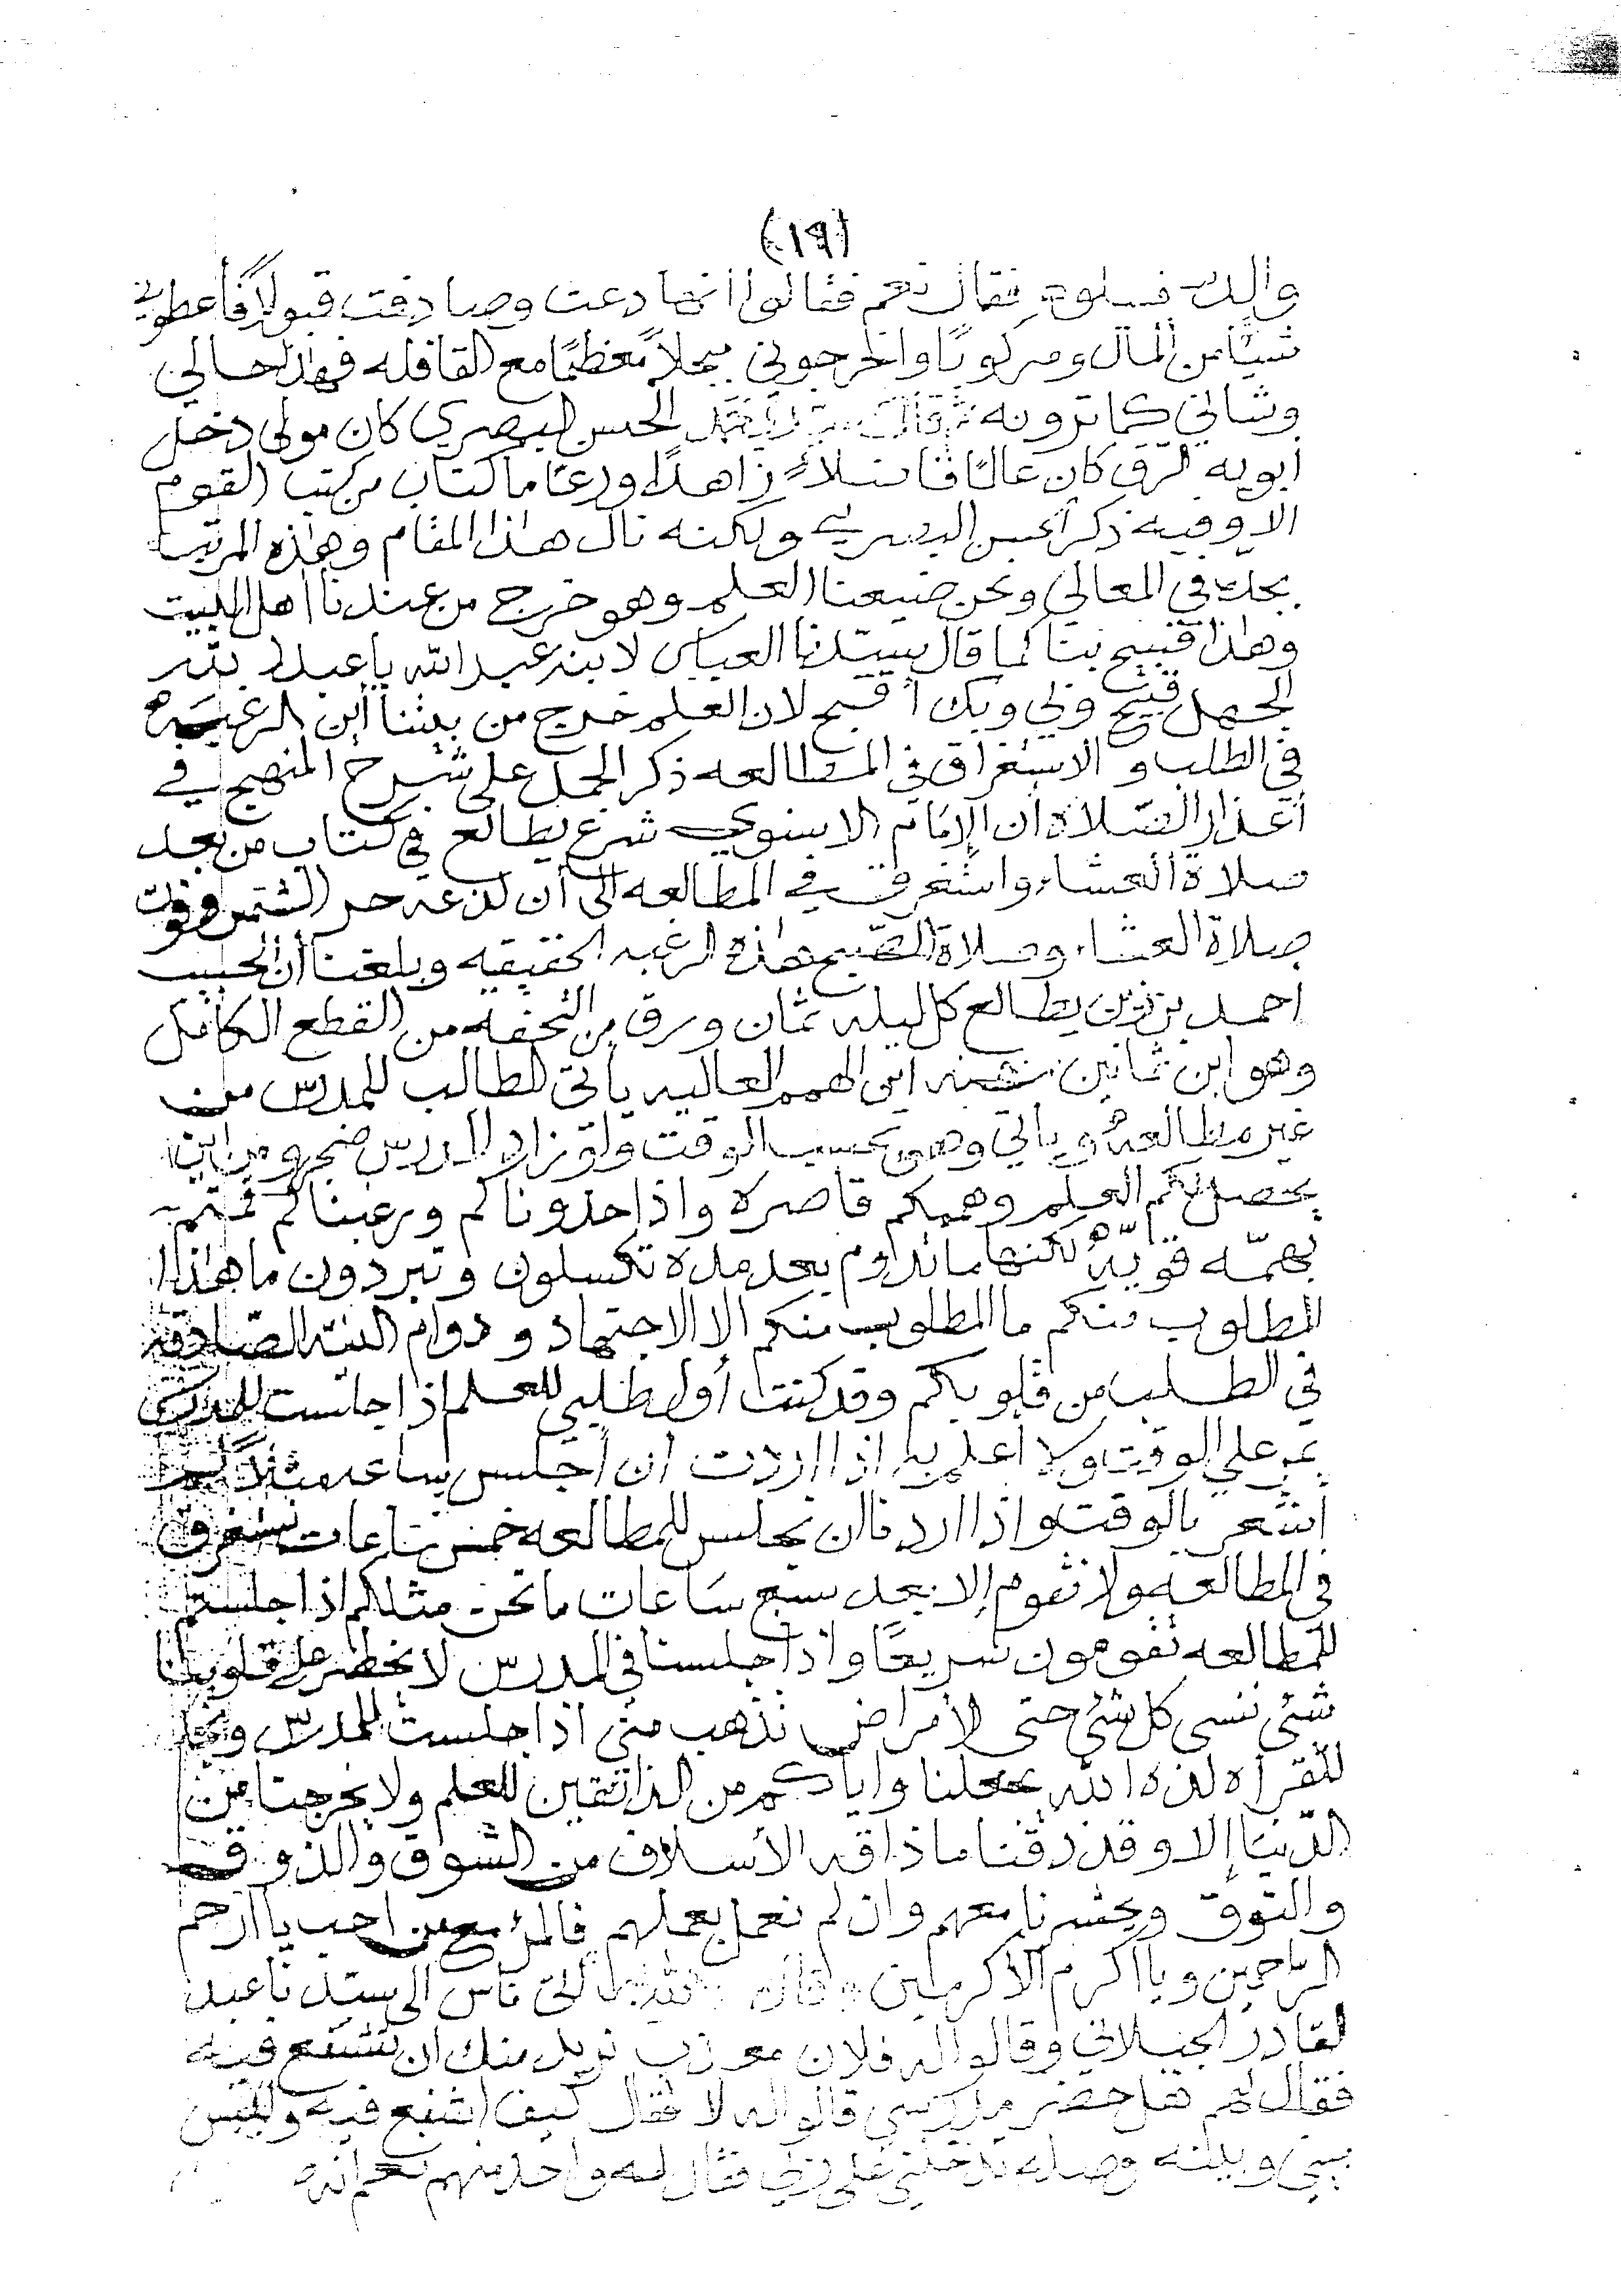 (١٩)
فقال نعم فقالوا انها دعت وصادفت قبولاً فأعطوني
شيئا من المال ومركوبًا واخرجوني مبجلاً معظمًا مع القافله فهذا حالي
وشاني كما ترونه الحسن البصري كان مولى دخل
أبويه الرق كان عالمًا فاضلاً زاهدًا ورعًا ما كتاب من كتب القوم
الا وفيه ذكر الحسن البصري ولكنه نال هذا المقام وهذه المرتبه
بجده في المعالي ونحن ضيعنا العلم وهو خرج من عندنا أهل البيت
وهذا قبيح بنا كما قال سيدنا العباس لابنه عبدالله يا عبدالله
الجهل قبيح وبي وبك أقبح لان العلم خرج من بيتنا أين الرغبه
في الطلب والاستغراق في المطالعه ذكر الجمل على شرح المنهج في
أعذار الصلاة ان الإمام الاسنوي شرع يطالع في كتاب من بعد
صلاة العشاء واستغرق في المطالعه الى أن لذعه حر الشمس وفوت
صلاة العشاء وصلاة الصبح هذه الرغبه الحقيقيه وبلغنا أن الحبيب
احمد بن زين يطالع كل ليله ثمان ورق من التحفه من القطع الكامل
وهو ابن ثمانين سنه اين الهمم العاليه يأتي الطالب للمدرس من
غير مطالعه ويأتي وهو يحسب الوقت ولو زاد الدرس ضجر ومن اين
يحصل لكم العلم وهممكم قاصره واذا حذوناكم ورغبناكم قمتم
بهمّه قويّه لكنها ما تداوم بعد مده تكسلون وتبردون ما هذا ا
لمطلوب منكم ما المطلوب منكم إلا الاجتهاد ودوام النيه الصّادقه
في الطلب من قلوبكم وقد كنت أول طلبي للعلم اذا جلست للمدرس
يمر علي الوقت ولا اعلم به اذا اردت ان أجلس ساعه مثلاً لم
اشعر بالوقت واذا اردنا ان نجلس للمطالعه خمس ساعات نستغرق
في المطالعه ولا نقوم إلا بعد سبع سَاعات ما نحن مثلكم اذا جلستم
للمطالعه تقومون سريعًا واذا جلسنا في المدرس لا يخطر على قلوبنا
شئ ننسى كل شئ حتى الأمراض تذهب مني اذا جلست للمدرس
للقرآه لذه الله يجعلنا واياكم من الذائقين للعلم ولا يخرجنا من
الدّنيا إلا وقد ذقنا ما ذاقه الأسلاف من الشوق والذوق
والتوق ويحشرنا معهم وان لم نعمل بعملهم فالمرء مع من احب يا أرحم
الراحمين ويا أكرم الأكرمين ناس الى سيدنا عبد
لقادر الجيلاني وقالوا له فلان معذب نريد منك ان تشفع فيه
فقال لهم هل حضر مدرسي قالوا له لا فقال كيف اشفع فيه وليس
بيني وبينه وصله فقال له واحد منهم نعم انه